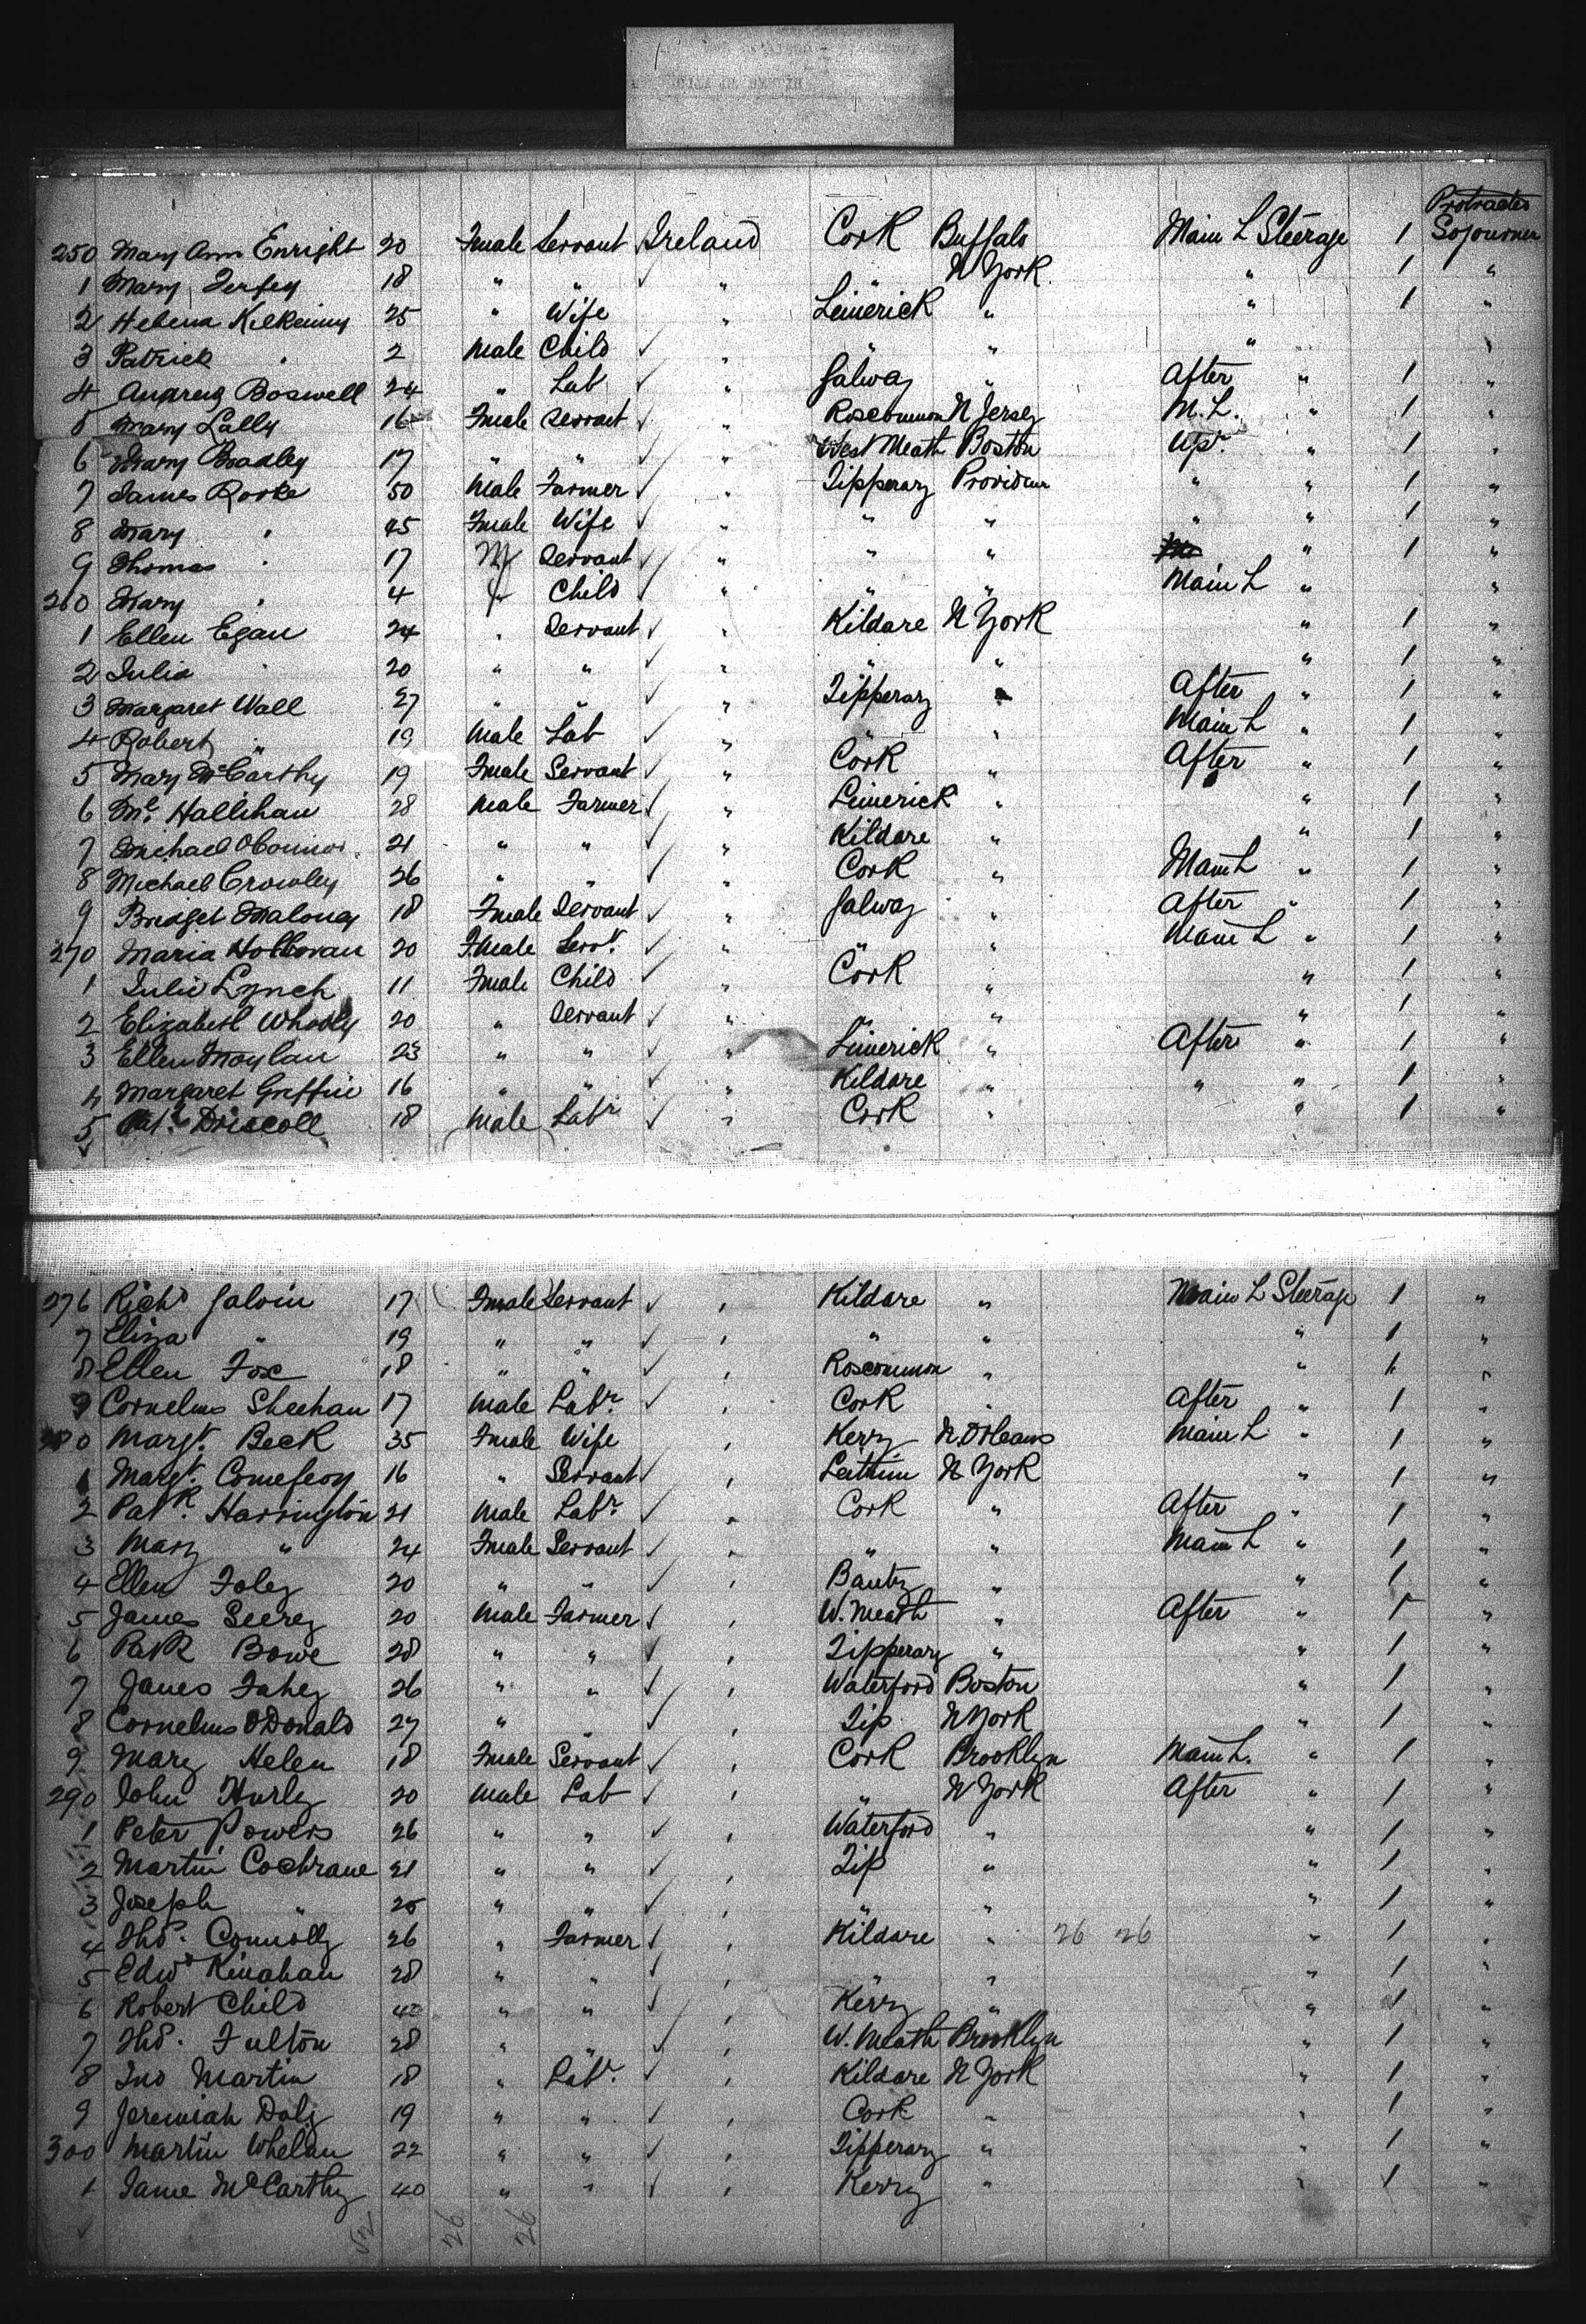 Protracted
250 Mary Ann Enright 20 Female Servant Ireland Cork Buffalo Main L Steerage 1 Sojourner
1 Mary 18 " " ✓ " " N York " 1 "
2 Helena Kilkenny 25 " Wife " Limerick " " 1 "
3 Patrick " 2 Male Child ✓ " " " " "
4 Boswell 24 " Lab ✓ " Galway " After " 1 "
5 Mary Lally 16 Female Servant ✓ " Roscommon N Jersey M.L. " 1 "
6 Mary Bradley 17 " " ✓ " West Meath Boston Upr. " 1 "
7 James Rooke 50 Male Farmer ✓ " Tipperary " " 1 "
8 Mary " 45 Female Wife ✓ " " " " " 1 "
9 Thomas " 17 M Servant ✓ " " " " 1 "
260 Mary " 4 f Child ✓ " " " Main L " "
1 Ellen Egan 24 " Servant ✓ " Kildare N York " 1 "
2 Julia " 20 " " ✓ " " " " 1 "
3 Margaret Wall 27 " " ✓ " Tipperary " After " 1 "
4 Robert " 19 Male Lab ✓ " " " Main L " 1 "
5 Mary McCarthy 19 Female Servant ✓ " Cork " After " 1 "
6 Ml. Hallihan 28 Male Farmer ✓ " Limerick " " 1 "
7 Michael OConnor 21 " " ✓ " Kildare " " 1 "
8 Michael Crowley 26 " " ✓ " Cork " Main L " 1 "
9 Bridget Maloney 18 Female Servant ✓ " Galway " After " 1 "
270 Maria Holloran 20 Female Servt. ✓ " " " Main L " 1 "
1 Julia Lynch 11 Female Child ✓ " Cork " " 1 "
2 Elizabeth Whooly 20 " Servant ✓ " " " " 1 "
3 Ellen Moylan 23 " " ✓ " Limerick " After " 1 "
4 Margaret Griffin 16 " " ✓ " Kildare " " " 1 "
5 Patk Driscoll 18 Male Labr ✓ " Cork " " 1 "
276 Richd Galvin 17 Female Servant ✓ " Kildare " Main L Steerage 1 "
7 Eliza " 19 " " ✓ " " " " 1 "
8 Ellen Fox 18 " " ✓ " Roscommon " " 1 "
9 Cornelius Sheehan 17 Male Labr. ✓ " Cork " After " 1 "
280 Margt. Beck 35 Female Wife " Kerry N. Orleans Main L " 1 "
1 Margt. 16 " Servant ✓ " Leitrim N York " 1 "
2 Patk. Harrington 21 Male Labr. ✓ " Cork " After " 1 "
3 Mary " 24 Female Servant ✓ " " " Main L " 1 "
4 Ellen Foley 20 " " ✓ " Bantry " " 1 "
5 James Seerey 20 Male Farmer ✓ " W. Meath " After " 1 "
6 Patk Bowe 28 " " ✓ " Tipperary " " 1 "
7 James Fahey 26 " " ✓ " Waterford Boston " 1 "
8 Cornelius ODonald 27 " " ✓ " Tip N York " 1 "
9 Mary Helen 18 Female Servant ✓ " Cork Brooklyn Main L. " 1 "
290 John Hurley 20 Male Lab ✓ " " N York After " 1 "
1 Peter Powers 26 " " ✓ " Waterford " " 1 "
2 Martin Cochrane 21 " " ✓ " Tip " " 1 "
3 Joseph " 25 " " ✓ " " " " 1 "
4 Thos. Connolly 26 " Farmer ✓ " Kildare " 26 26 " 1 "
5 Edwd Kinahan 28 " " ✓ " " " " 1 "
6 Robert Child 42 " " ✓ " Kerry " " 1 "
7 Thos. Fulton 28 " " ✓ " W. Meath Brooklyn " 1 "
8 Jno Martin 18 " Labr. ✓ " Kildare N York " 1 "
9 Jeremiah Daly 19 " " ✓ " Cork " " 1 "
300 Martin Whelan 22 " " ✓ " Tipperary " " 1 "
1 Jame McCarthy 40 " " ✓ " Kerry " " 1 "
52 26 26